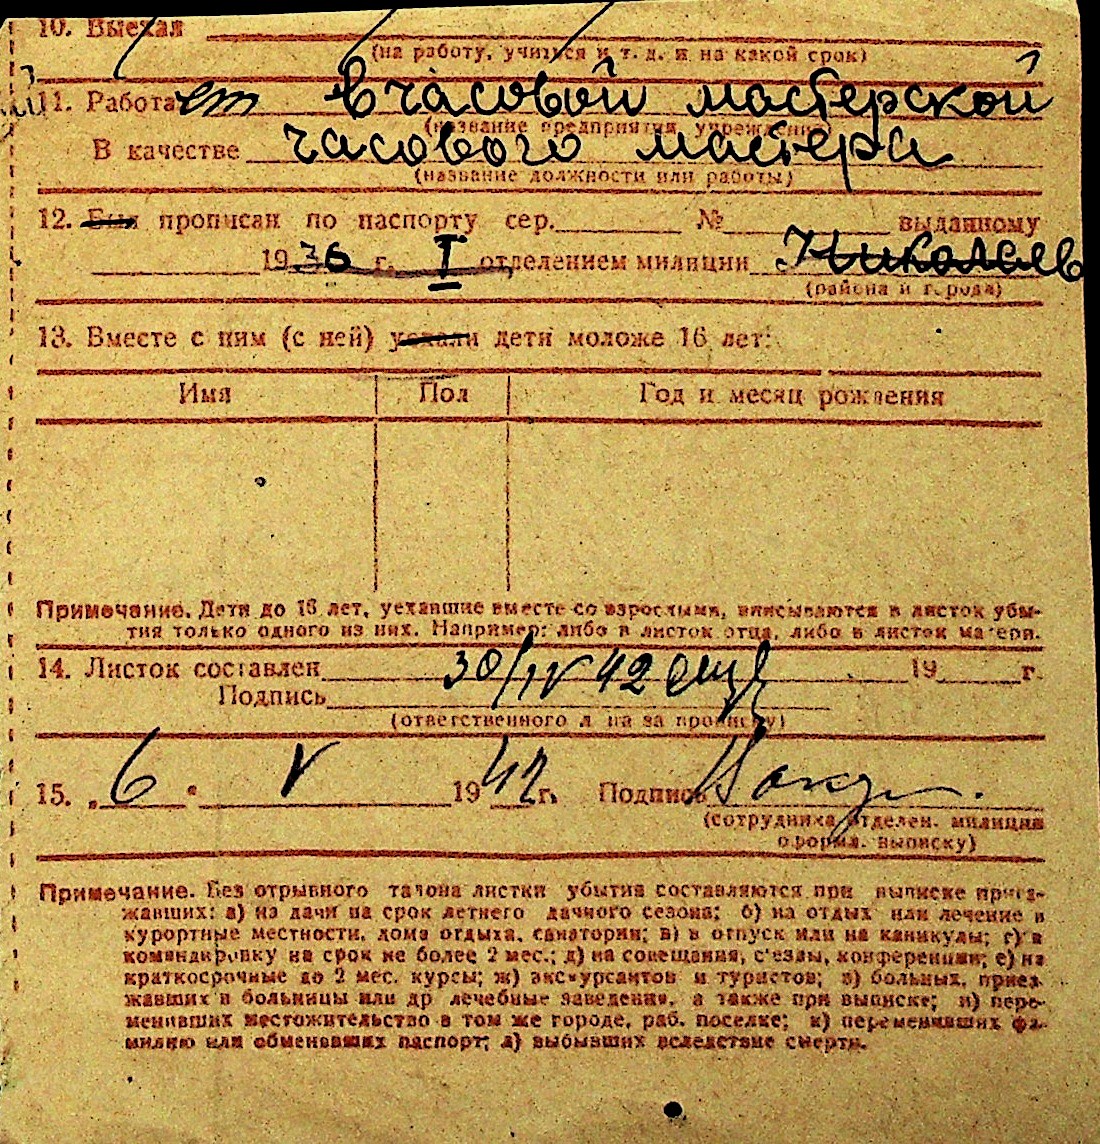 10. Выехал
(на работу, учиться и т. д. и на какой срок)
11. Работает в часовой мастерской
(название предприятия, учреждения)
В качестве часового мастера
(название должности или работы)
12. Был прописан по паспорту сер. № выданному
1936 г. I отделением милиции Николаев
(района и города)
13. Вместе с ним (с ней) уехали дети моложе 16 лет:
Имя Пол Год и месяц рождения
Примечание. Дети до 16 лет, уехавшие вместе со взрослыми, вписываются в листок убы-
тия только одного из них. Например: либо в листок отца, либо в листок матери.
14. Листок составлен 30/IV 42 19 г.
Подпись
(ответственного лица за прописку)
15. „6" V 1942 г. Подпись
(сотрудника отделен. милиции
оформл. выписку)
Примечание. Без отрывного талона листки убытия составляются при выписке приез-
жавших: а) из дачи на срок летнего дачного сезона; б) на отдых или лечение в
курортные местности, дома отдыха, санатории; в) в отпуск или на каникулы; г) в
командировку на срок не более 2 мес.; д) на совещания, с'езды, конференции; е) на
краткосрочные до 2 мес. курсы; ж) экскурсантов и туристов; з) больных, приез-
жавших в больницы или др лечебные заведения, а также при выписке; и) пере-
менивших местожительство в том же городе, раб. поселке; к) переменивших фа-
милию или обменявших паспорт; л) выбывших вследствие смерти.